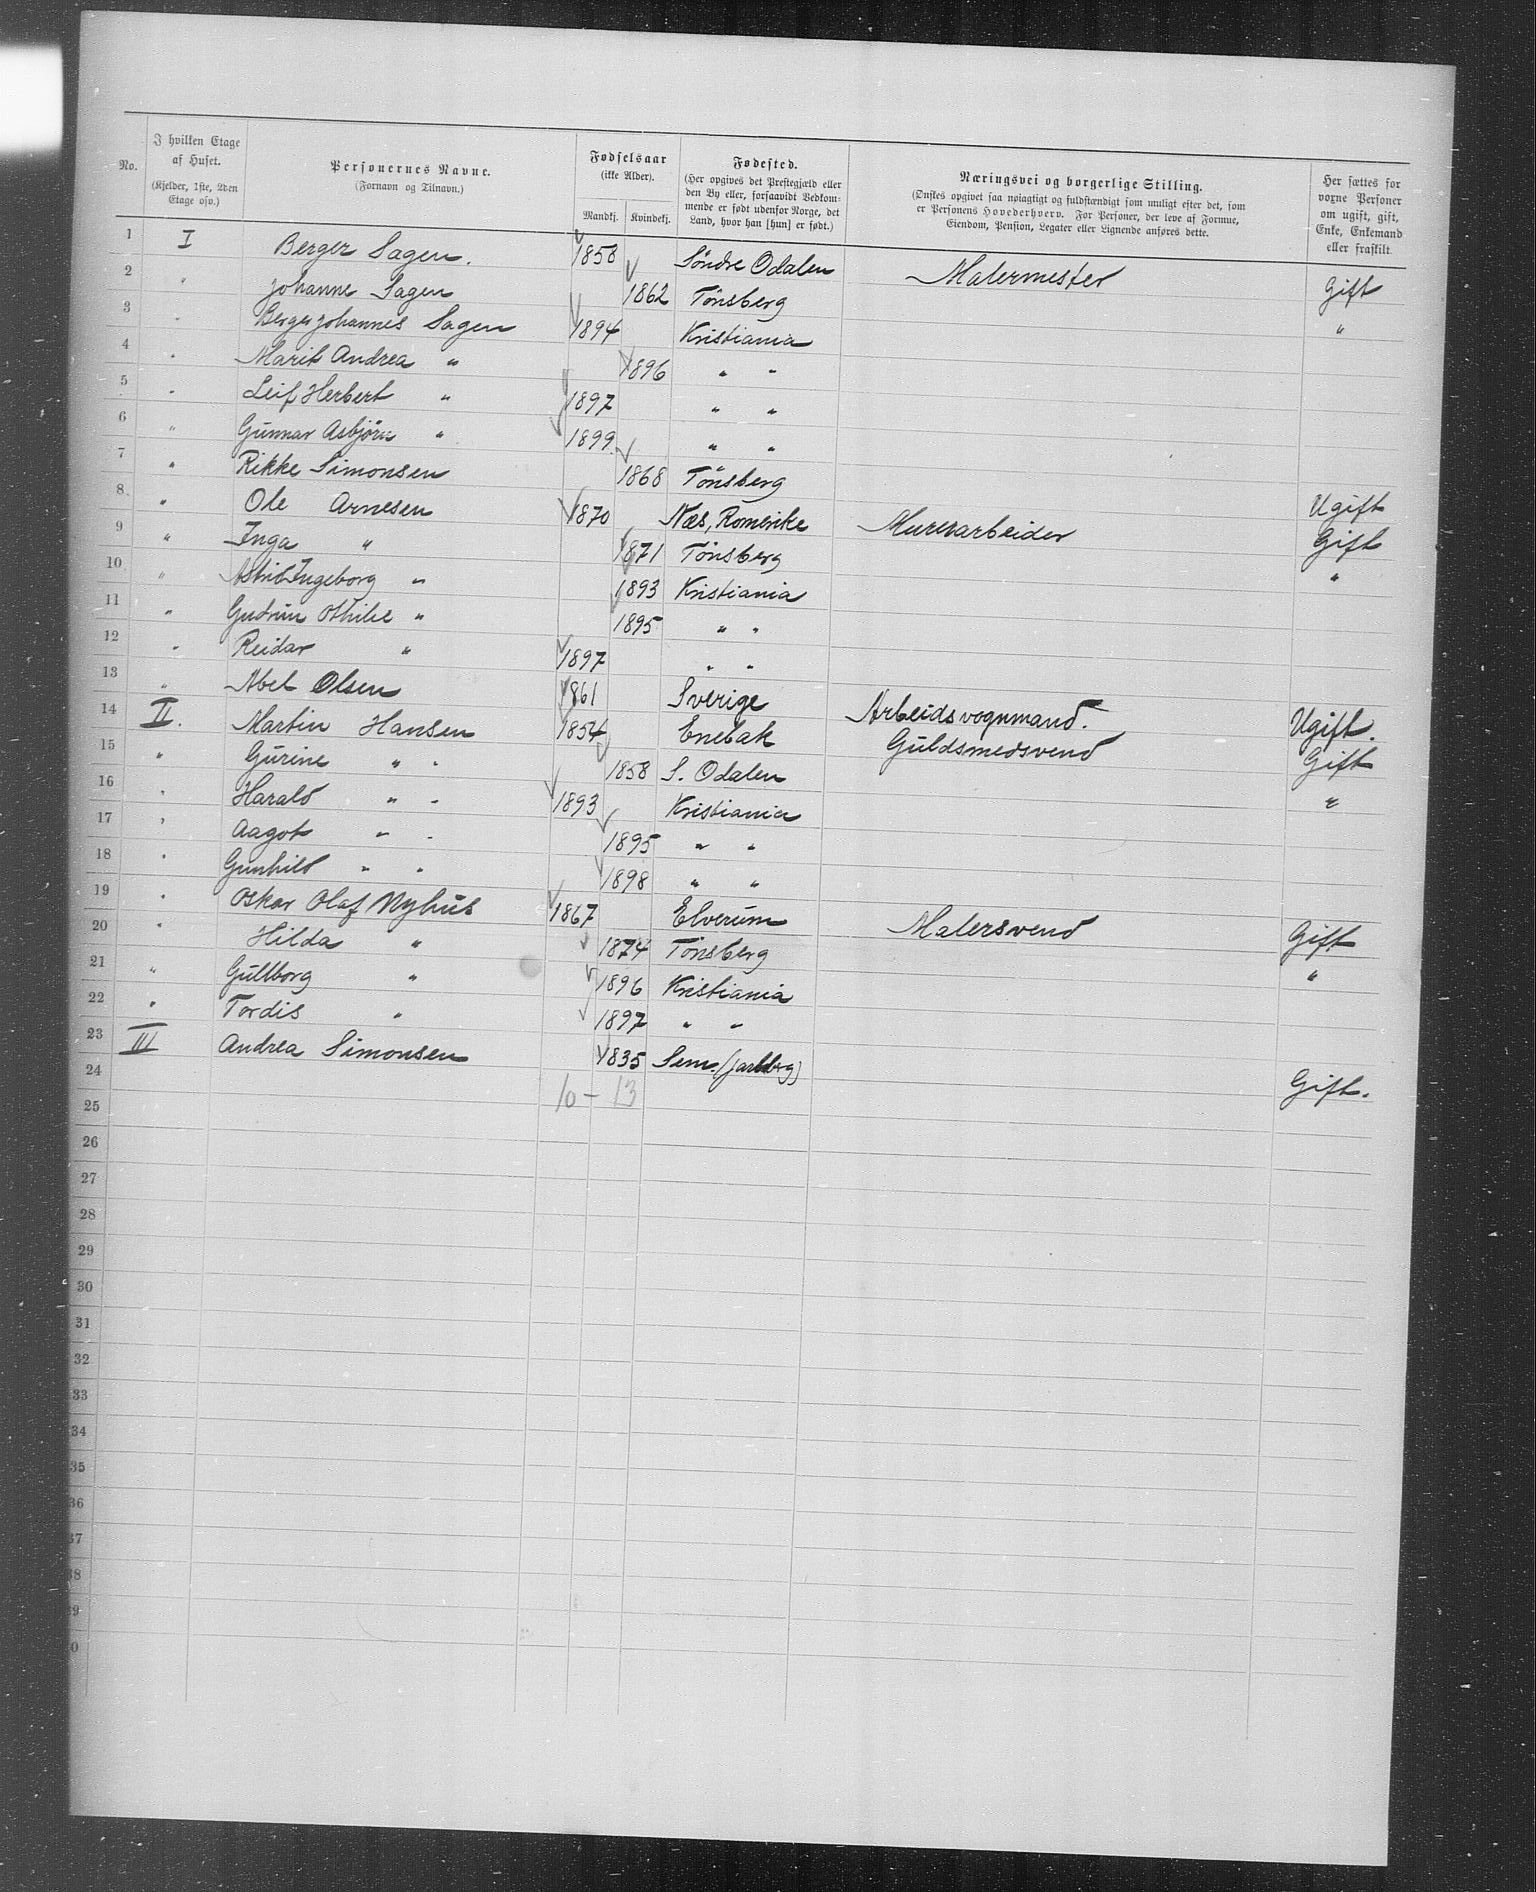 No. | I hvilken Etage af Huset. (Kjelder, 1ste, 2den Etage osv.) | Personernes Navne. (Fornavn og Tilnavn.) | Fødselsaar (ikke Alder). Mandkj. Kvindekj. | Fødested. (Her opgives det Prestegjæld eller den By eller, forsaavidt Vedkommende er født udenfor Norge, det Land, hvor han [hun] er født.) | Næringsvei og borgerlige Stilling. (Ønskes opgivet saa nøiagtigt og fuldstændigt som muligt efter det, som er Personens Hovederhverv. For Personer, der leve af Formue, Eiendom, Pension, Legater eller Lignende anføres dette. | Her sættes for voxne Personer om ugift, gift, Enke, Enkemand eller fraskilt.
1 I Berger Sagen. 1858 Søndre Odalen Malermester Gift
2 " Johanne Sagen 1862 Tönsberg "
3 " Berger Johannes Sagen 1894 Kristiania
4 " Marit Andrea " 1896 " "
5 " Leif Herbert " 1897 " "
6 " Gunnar Asbjörn " 1899. " "
7 " Rikke Simonsen 1868 Tönsberg Ugift
8 " Ole Arnesen 1870 Næs, Romerike Murerarbeider Gift
9 " Inga " 1871 Tönsberg "
10 " Astrid Ingeborg " 1893 Kristiania
11 " Gudrun Othilie " 1895 " "
12 " Reidar " 1897 " "
13 " Abel Olsen 1861 Sverige Arbeidsvognmand. Ugift.
14 II. Martin Hansen 1854 Enebak Guldsmedsvend Gift
15 " Gurine " " 1858 S. Odalen "
16 " Harald " " 1893 Kristiania
17 " Aagot " " 1895 " "
18 " Gunhild " " 1898 " "
19 " Oskar Olaf Nyhus 1867 Elverum Malersvend Gift
20 " Hilda " 1874 Tönsberg "
21 " Gullborg " 1896 Kristiania
22 " Tordis " 1897 " "
23 III Andrea Simonsen 1835 Sem. (Jarlsberg) Gift.
24
25 10 - 13
26
27
28
29
30
31
32
33
34
35
36
37
38
39
40